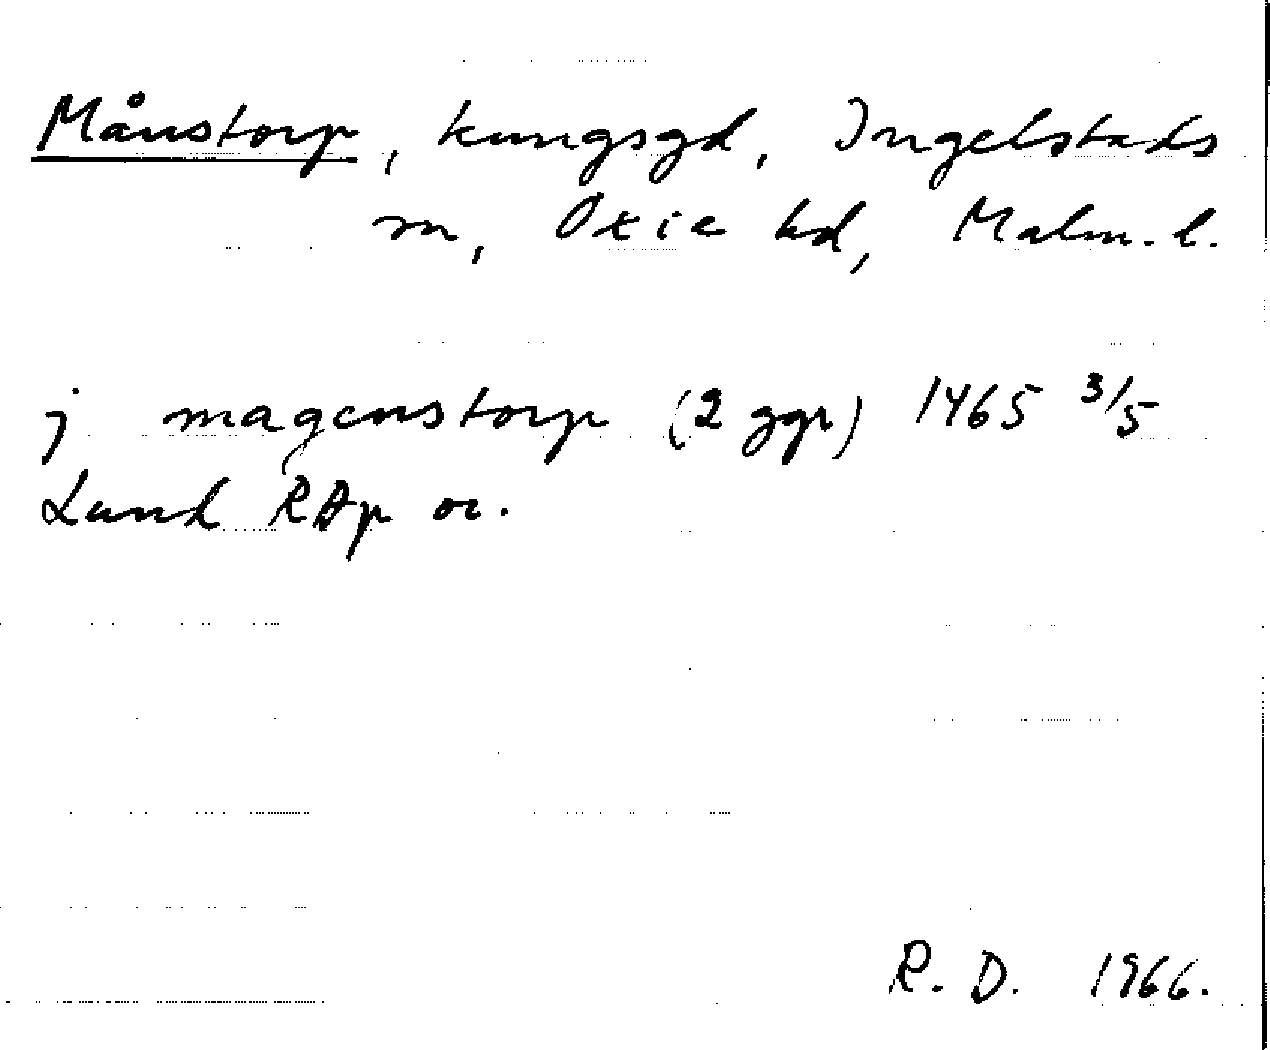 Månstorp, kungsgd, Ingelstads
sn, Oxie hd, Malm. l.
j magenstorp (2 ggr) 1465 3/5
Lund RAp or.
R. D. 1966.